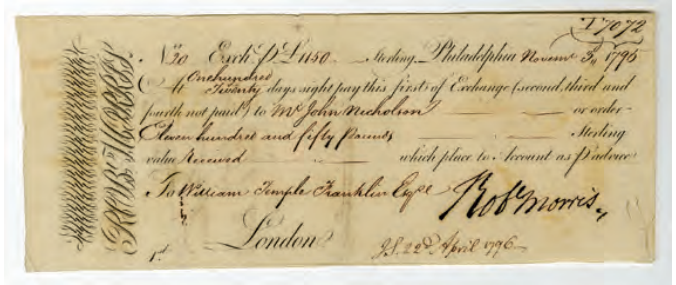 17072
No. 20 Exch. p £1150.— Sterling Philadelphia Novemr. 3, 1795
At One hundred
Twenty days sight pay this first of Exchange (second, third and
fourth not paid) to Mr. John Nicholson or order
Eleven hundred and fifty Pounds Sterling
value Received which place to Account as p advice
To William Temple Franklin Esqre Robt Morris
London
1st. 22d April 1796
ROB. MORRIS.